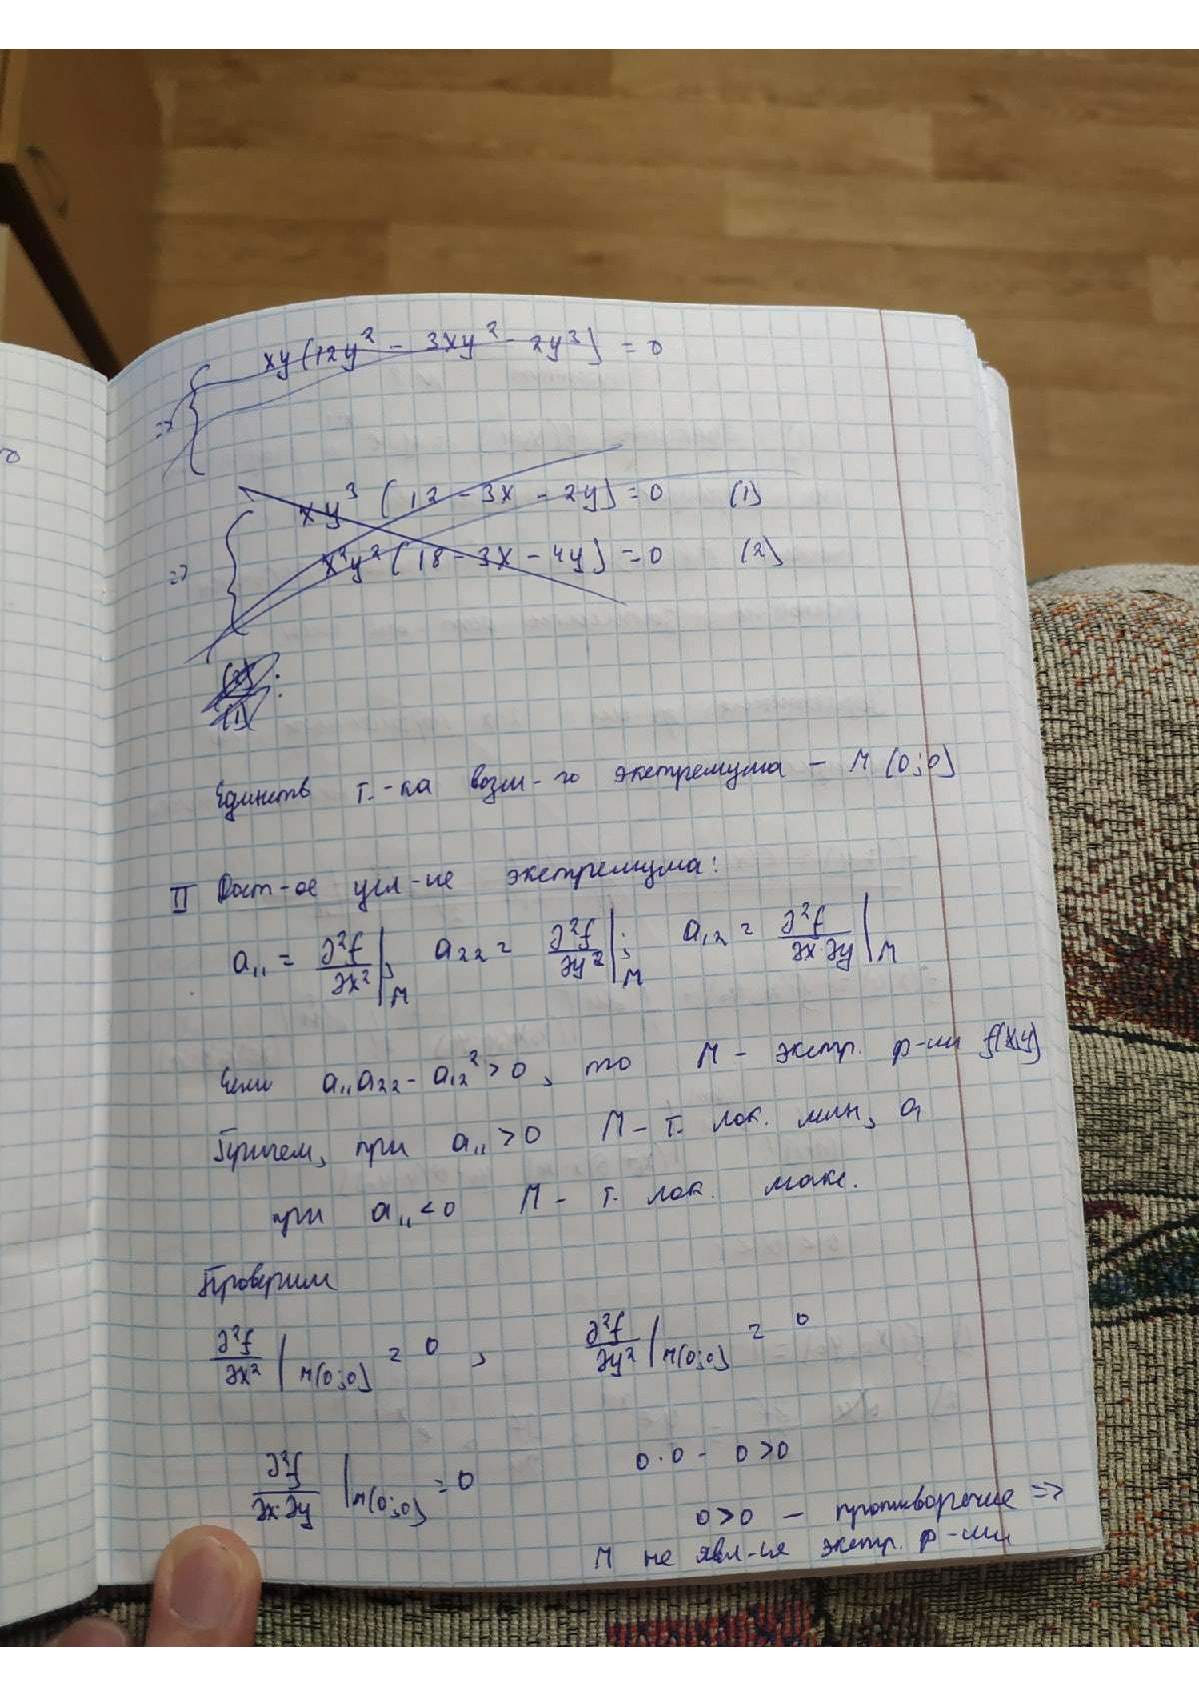 xy(12y² - 3xy² - 2y³) = 0
=> {
xy³ (12 - 3x - 2y) = 0 (1)
=> { x²y² (18 - 3x - 4y) = 0 (2)
(2)
(1) :
Единств т.-ка возм-го экстремума - M (0;0)
II Дост-ое усл-ие экстремума:
a₁₁ = ∂²f/∂x² |M ; a₂₂ = ∂²f/∂y² |M ; a₁₂ = ∂²f/∂x·∂y |M
Если a₁₁a₂₂ - a₁₂² > 0, то M - экстр. ф-ии f(x,y)
Причем, при a₁₁ > 0 M - т. лок. мин, а
при a₁₁ < 0 M - т. лок. макс.
Проверим
∂²f/∂x² |M(0;0) = 0 , ∂²f/∂y² |M(0;0) = 0
∂²f/∂x·∂y |M(0;0) = 0 0·0 - 0 > 0
0 > 0 - противоречие =>
M не явл-ся экстр. ф-ии